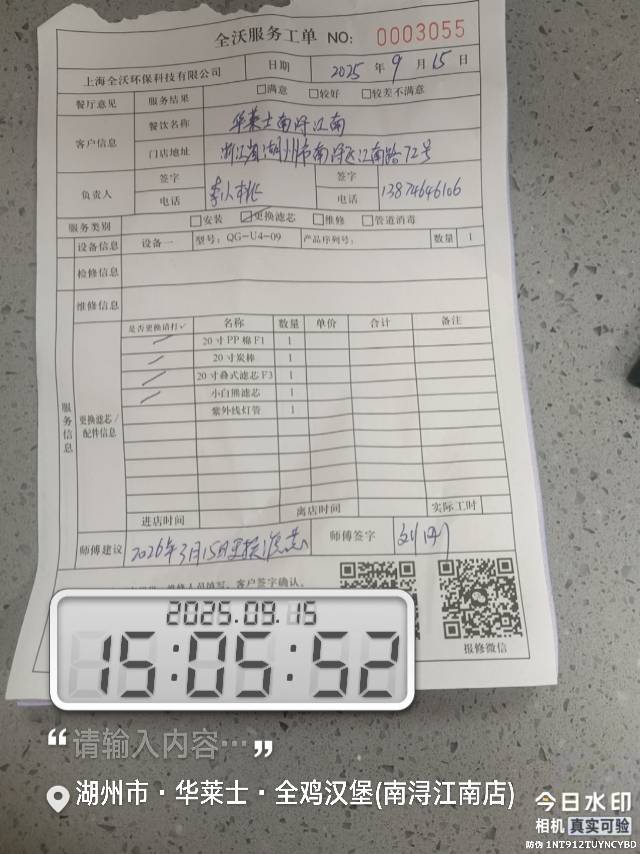 全沃服务工单 NO: 0003055
上海全沃环保科技有限公司 日期 2025 年 9 月 15 日
餐厅意见 服务结果 □满意 □较好 □较差不满意
客户信息 餐饮名称 华莱士南浔江南
门店地址 浙江省湖州市南浔区江南路72号
负责人 签字 签字
电话 电话 13874646106
服务类别 □安装 ☑更换滤芯 □维修 □管道消毒
设备信息 设备一 型号: QG-U4-09 产品序列号: 数量 1
检修信息
维修信息
服务信息 更换滤芯/配件信息 是否更换请打✓ 名称 数量 单价 合计 备注
20寸PP棉F1 1
20寸炭棒 1
20寸叠式滤芯F3 1
小白熊滤芯 1
紫外线灯管 1
进店时间 离店时间 实际工时
师傅建议 2026年3月15日更换滤芯 师傅签字
维修人员填写，客户签字确认。
报修微信
2025.09.15
15:05:52
“请输入内容…”
湖州市·华莱士·全鸡汉堡(南浔江南店)
今日水印
相机 真实可验
防伪 1NT912TUYNCYBD